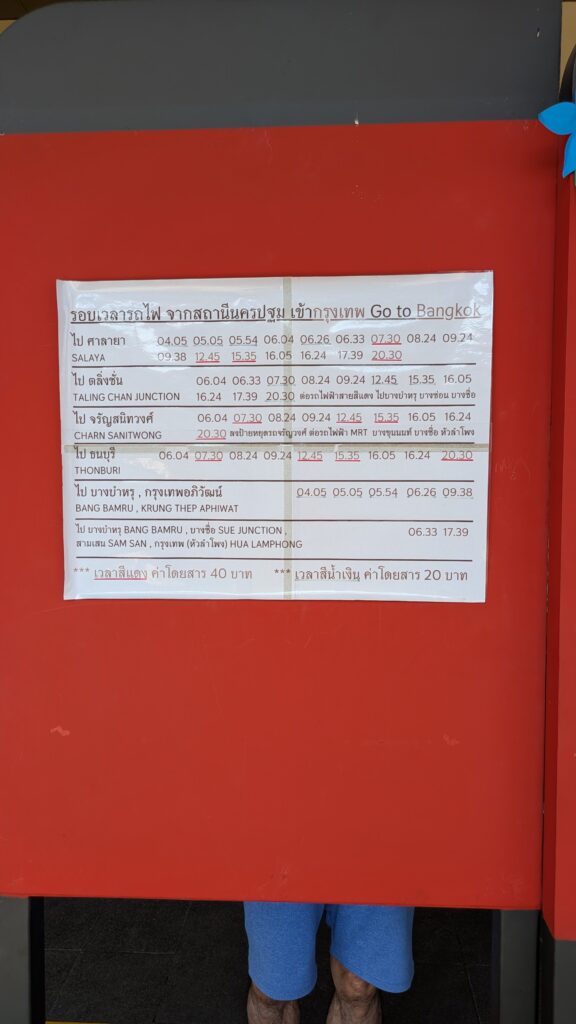 รอบเวลารถไฟ จากสถานีนครปฐม เข้ากรุงเทพ Go to Bangkok
ไป ศาลายา 04.05 05.05 05.54 06.04 06.26 06.33 07.30 08.24 09.24
SALAYA 09.38 12.45 15.35 16.05 16.24 17.39 20.30
ไป ตลิ่งชัน 06.04 06.33 07.30 08.24 09.24 12.45 15.35 16.05
TALING CHAN JUNCTION 16.24 17.39 20.30 ต่อรถไฟฟ้าสายสีแดง ไปบางบำหรุ บางซ่อน บางซื่อ
ไป จรัญสนิทวงศ์ 06.04 07.30 08.24 09.24 12.45 15.35 16.05 16.24
CHARN SANITWONG 20.30 ลงป้ายหยุดรถจรัญวงศ์ ต่อรถไฟฟ้า MRT บางขุนนนท์ บางซื่อ หัวลำโพง
ไป ธนบุรี 06.04 07.30 08.24 09.24 12.45 15.35 16.05 16.24 20.30
THONBURI
ไป บางบำหรุ , กรุงเทพอภิวัฒน์ 04.05 05.05 05.54 06.26 09.38
BANG BAMRU , KRUNG THEP APHIWAT
ไป บางบำหรุ BANG BAMRU , บางซื่อ SUE JUNCTION , 06.33 17.39
สามเสน SAM SAN , กรุงเทพ (หัวลำโพง) HUA LAMPHONG
*** เวลาสีแดง ค่าโดยสาร 40 บาท *** เวลาสีน้ำเงิน ค่าโดยสาร 20 บาท